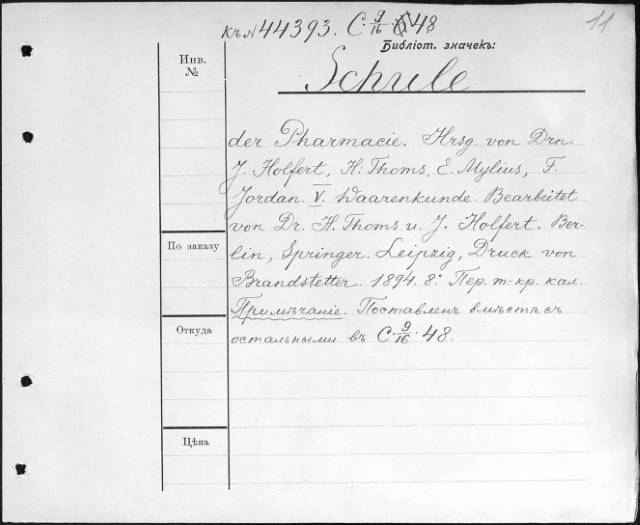 къ № 44393. С. 9/16 48
11
Библіот. значекъ:
Инв.
№
Schule
der Pharmacie. Hrsg. von Drn.
J. Holfert, H. Thoms, E. Mylius, F.
Jordan. V. Waarenkunde. Bearbeitet
von Dr. H. Thoms u. J. Holfert. Ber-
lin, Springer. Leipzig, Druck von
Brandstetter. 1894. 8°. Пер. т-кр. кал.
Примѣчаніе. Поставленъ вмѣстѣ съ
остальными въ С. 9/16. 48.
По заказу
Откуда
Цѣна